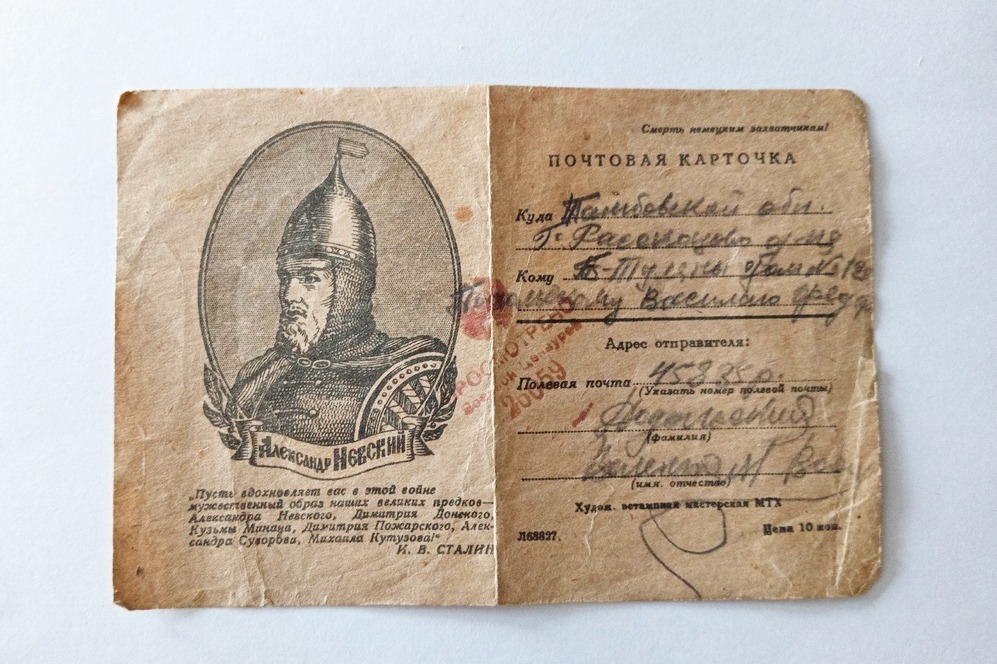 АЛЕКСАНДР НЕВСКИЙ
„Пусть вдохновляет вас в этой войне
мужественный образ наших великих предков—
Александра Невского, Димитрия Донского,
Кузьмы Минина, Димитрия Пожарского, Алек-
сандра Суворова, Михаила Кутузова!“
И. В. СТАЛИН
Смерть немецким захватчикам!
ПОЧТОВАЯ КАРТОЧКА
Куда Тамбовской обл.
Г. Рассказово
Кому Дом №
Василию
ПРОСМОТРЕНО
Военной Цензурой
20059
Адрес отправителя:
Полевая почта
(Указать номер полевой почты)
(фамилия)
(имя, отчество)
Худож. эстампная мастерская МТХ
Л68827.
Цена 10 коп.